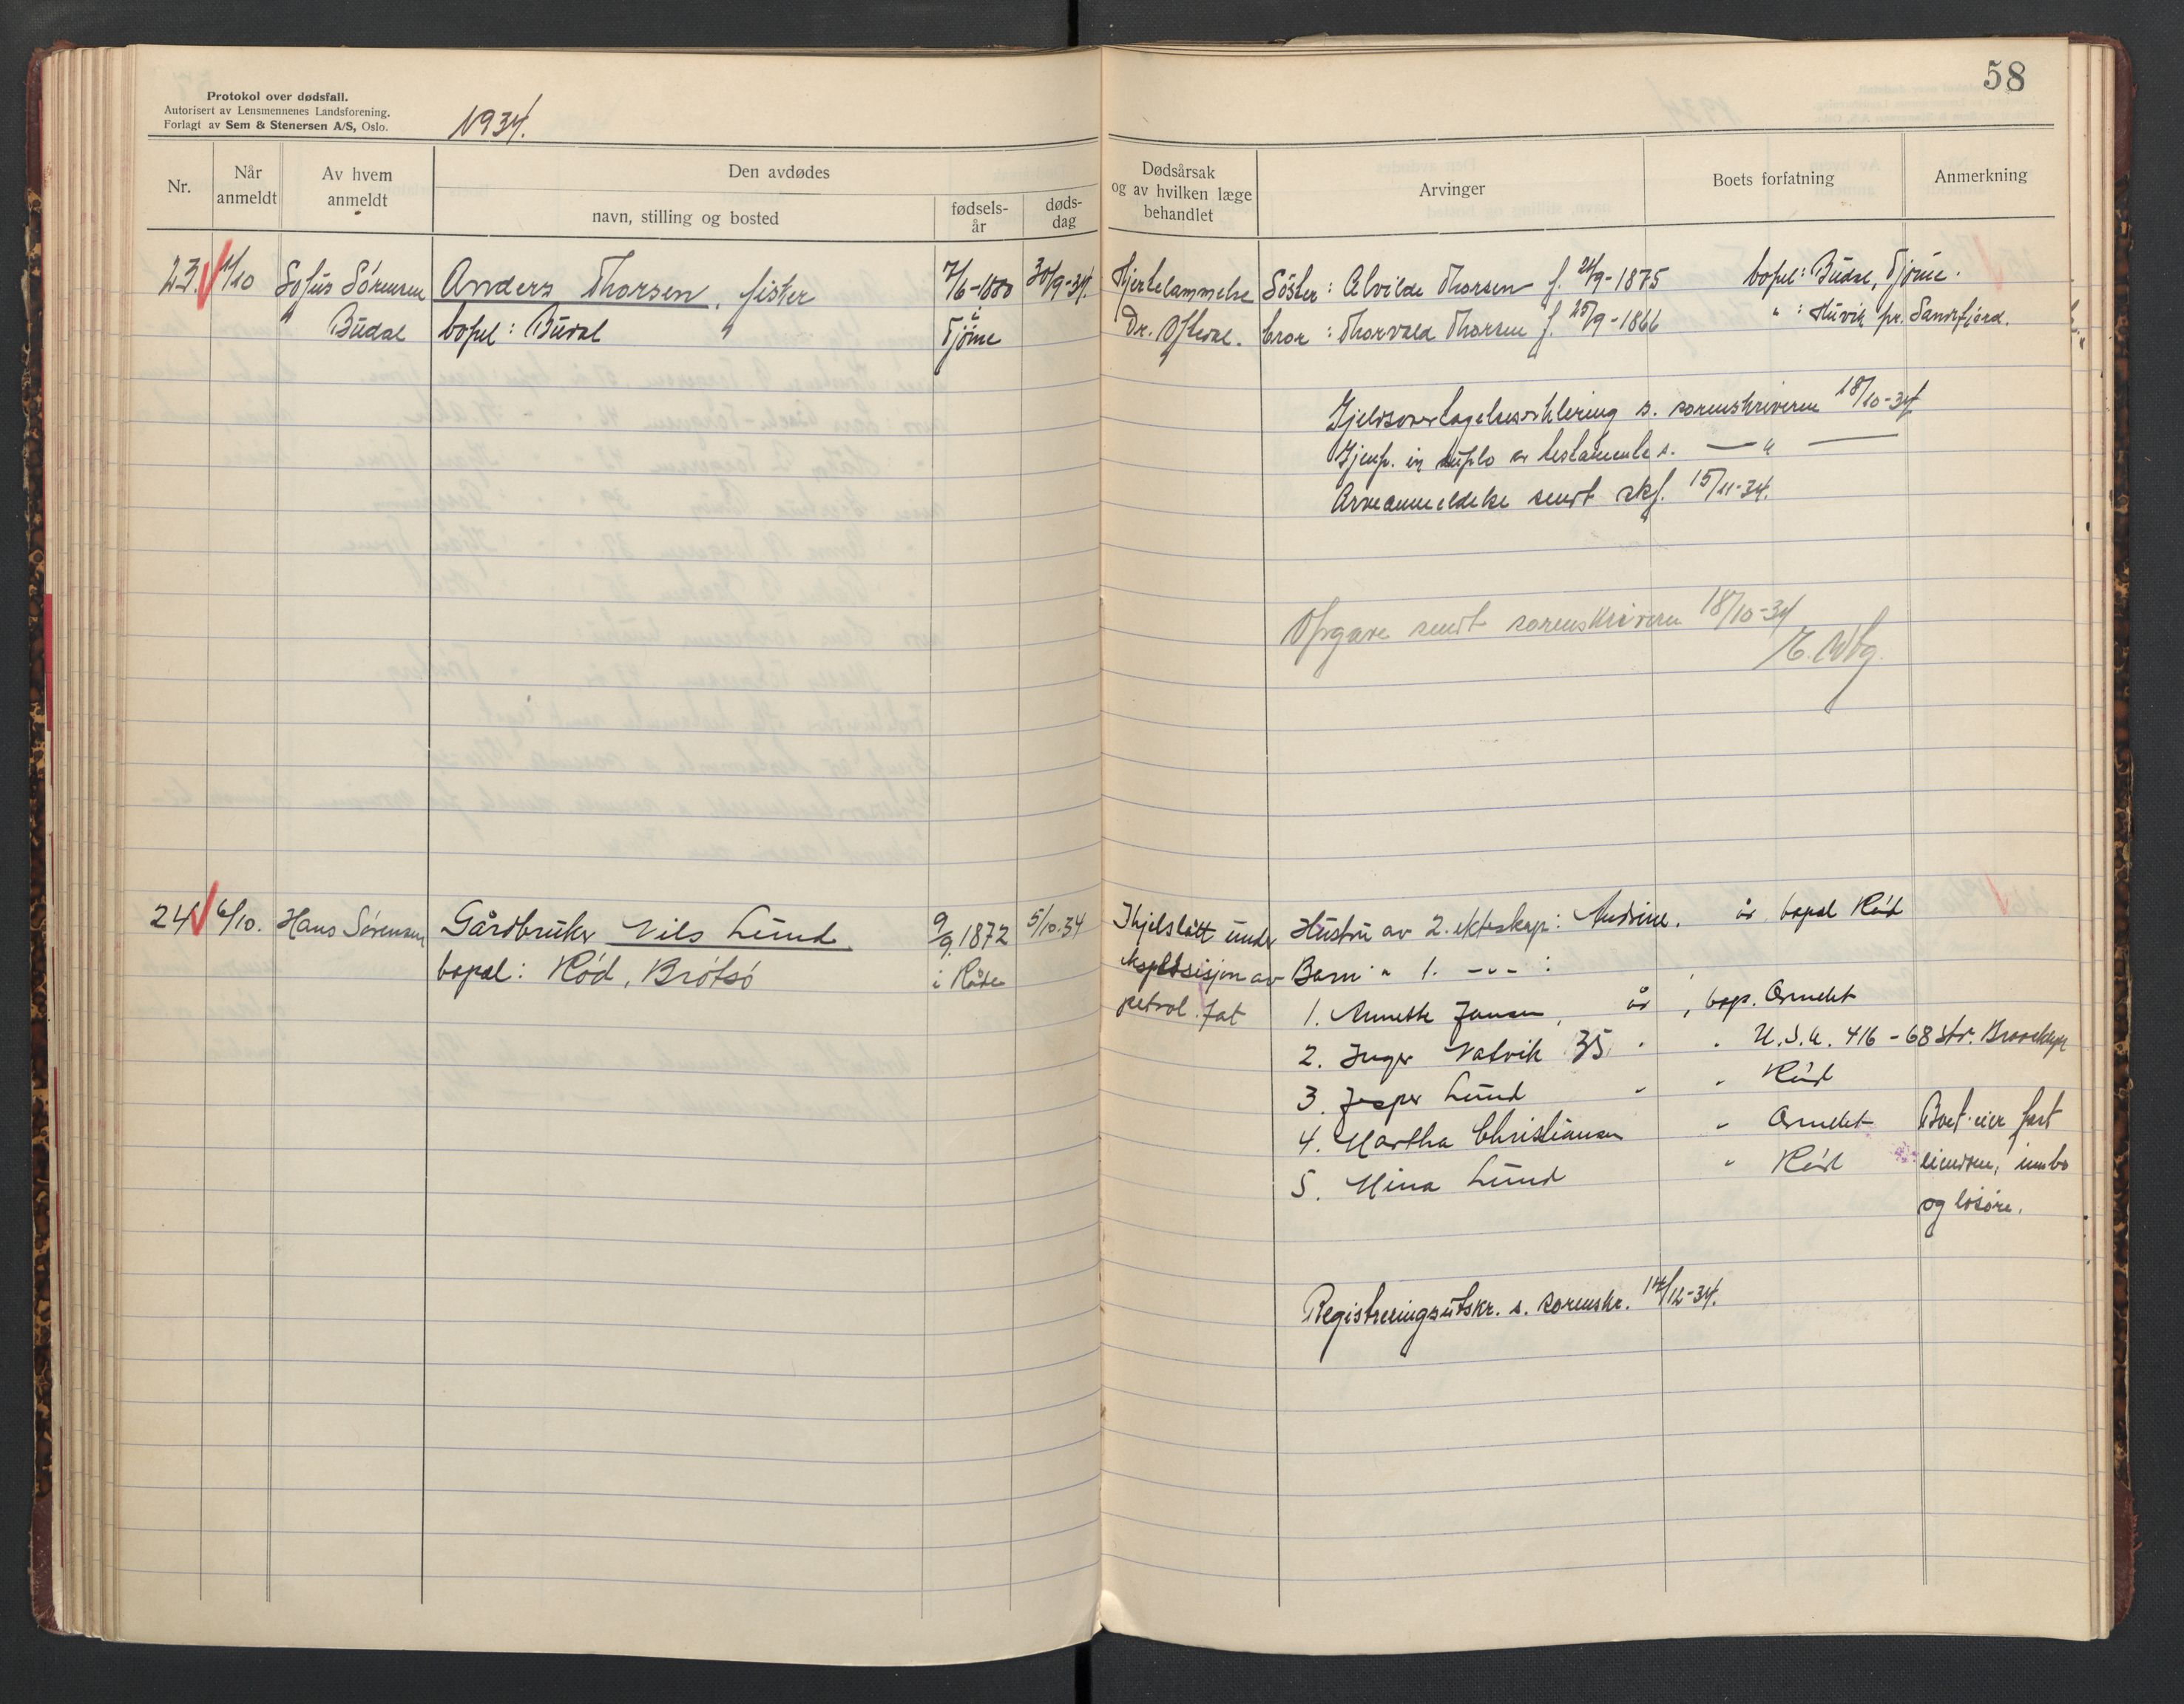 Protokol over dødsfall.
Autorisert av Lensmennenes Landsforening.
Forlagt av Sem & Stenersen A/S, Oslo.
1934.
58
Nr.
Når anmeldt
Av hvem anmeldt
Den avdødes
navn, stilling og bosted
fødsels-år
døds-dag
Dødsårsak og av hvilken læge behandlet
Arvinger
Boets forfatning
Anmerkning
23. 1/10 Sofus Sörensen Anders Thorsen, fisker 7/6-1880 30/9-34. Hjertelammelse Söster: Alvilde Thorsen f. 24/9-1875 bopel: Budal, Tjöme.
Budal bopel: Budal Tjöme Dr. Oftedal. bror: Thorvald Thorsen f. 25/9-1866 " : Huvik pr. Sandefjord.
Gjeldsovertagelseserklering s. sorenskriveren 18/10-34
Gjenp. in duplo av testamente s. — " —
Arveanmeldelse sendt skf. 15/11-34.
Opgave sendt sorenskriveren 18/10-34
24 6/10. Hans Sörensen Gårdbruker Nils Lund 9/9 1872 5/10.34 Ihjelslått under Hustru av 2. ekteskap: Andrine. år bopel Röd
bopel: Röd, Brötsö i Råde eksplosisjon av Barn " 1. -"- :
petrol. fat 1. Annette Jansen, år , bop. Ormelet
2. Inger Natvik 35 " " U.S.A. 416 - 68 Str. Brooklyn
3. Jesper Lund " " Röd
4. Martha Christiansen " Ormelet Boet eier fast
5. Mina Lund " Röd eiendom, innbo
og lösöre.
Registreringsutskr. s. sorenskr. 14/12-34.